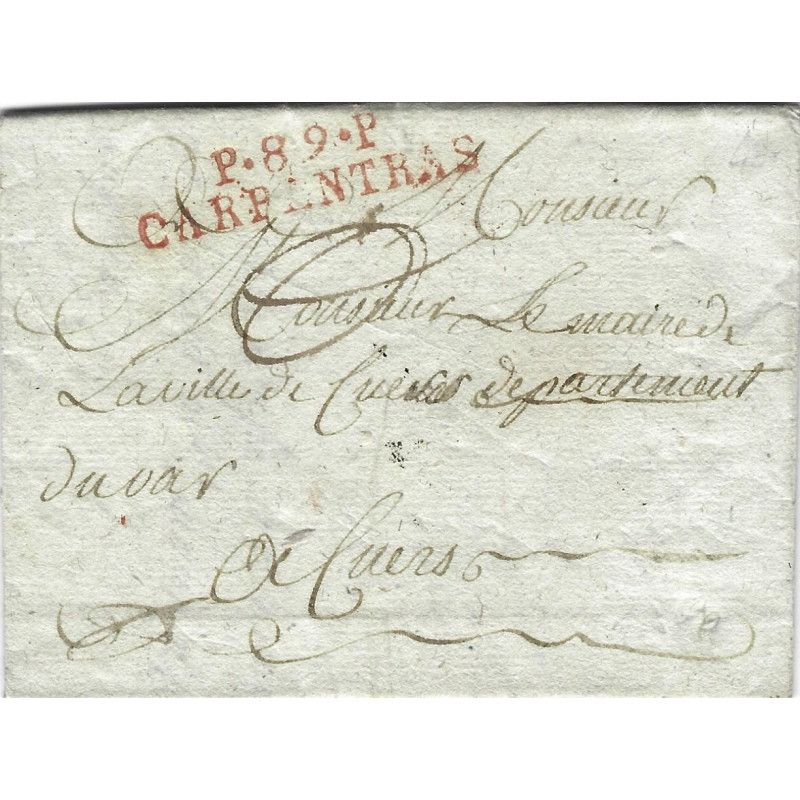 P.89.P
CARPENTRAS
Monsieur
Monsieur Le maire de
La ville de Cuers departement
du var
a Cuers